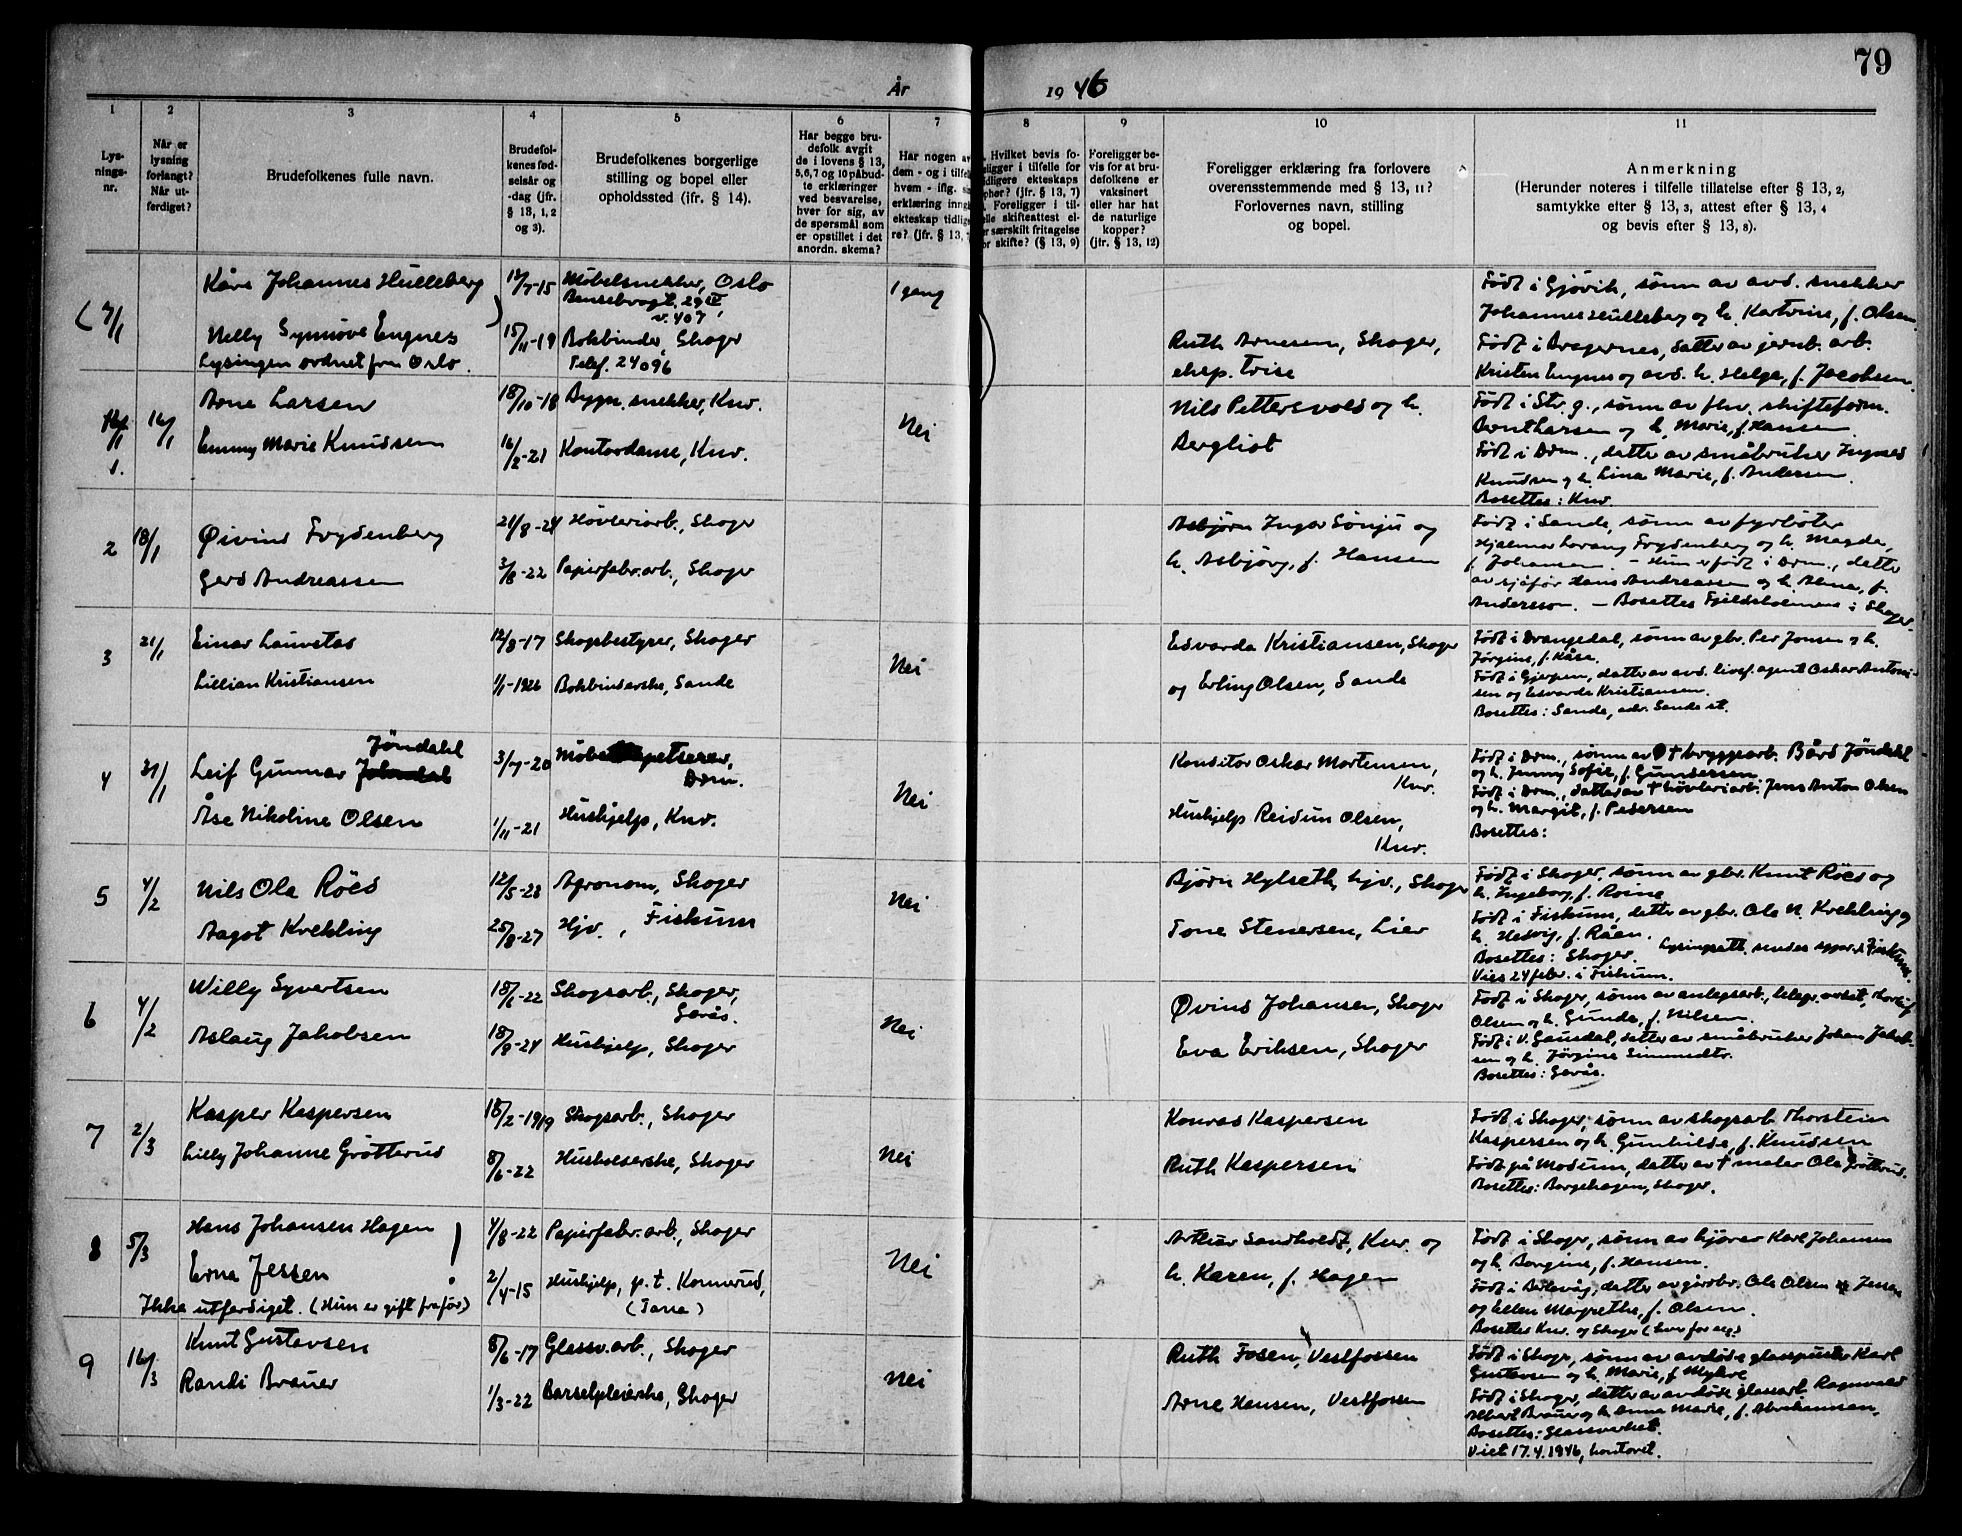 79
År 1946
1
2
3
4
5
6
7
8
9
10
11
Lys-
nings-
nr.
Når er
lysning
forlangt?
Når ut-
ferdiget?
Brudefolkenes fulle navn.
Brudefol-
kenes fød-
selsår og
-dag (jfr.
§ 13, 1, 2
og 3).
Brudefolkenes borgerlige
stilling og bopel eller
opholdssted (ifr. § 14).
Har begge bru-
defolk avgit
de i lovens § 13,
5, 6, 7 og 10 påbud-
te erklæringer
ved besvarelse,
hver for sig, av
de spørsmål som
er opstillet i det
anordn. skema?
Har nogen av
dem - og i tilfelle
hvem - iflg. sin
erklæring inngått
ekteskap tidlige-
re? (jfr. § 13,
Hvilket bevis fo-
religger i tilfelle for
tidligere ekteskaps
opphør? (jfr. § 13, 7)
Foreligger i til-
felle skifteattest el-
ler særskilt fritagelse
for skifte? (§ 13, 9)
Foreligger be-
vis for at bru-
defolkene er
vaksinert
eller har hat
de naturlige
kopper?
(jfr. § 13, 12)
Foreligger erklæring fra forlovere
overensstemmende med § 13, 11?
Forlovernes navn, stilling
og bopel.
Anmerkning
(Herunder noteres i tilfelle tillatelse efter § 13, 2,
samtykke efter § 13, 3, attest efter § 13, 4
og bevis efter § 13, 8).
(7/1
Kåre Johannes Hulleberg
12/7-15 Møbelsnekker, Oslo
29 IV
v. 407
1 gang
Nelly Synnøve Engnes
15/11-19 Bokbinder, Skoger
Telef. 24096
Lysingen ordnet fra Oslo.
Ruth Arnesen, Skoger,
eksp. Trise
Født i Gjøvik, sønn av avd. snekker
Johannes Hulleberg og h. Katrine, f. Olsen
Født i Bragernes, datter av jernb. arb.
Kristen Engnes og avd. h. Helga, f. Jacobsen.
1.
16/1
Arne Larsen
18/10-18 Bygn. snekker, Knv.
Emmy Marie Knudsen
16/2-21 Kontordame, Knv.
Nei
Nils Pettersvold og h.
Bergliot
Født i Str. g., sønn av fhv. skifteform.
Bernt Larsen og h. Marie, f. Hansen
Født i Drm., datter av småbruker Ingvald
Knudsen og h. Lina Marie, f. Andersen.
Bosettes: Knv.
2
18/1
Øivind Frydenberg
21/8-24 Høvleriarb., Skoger
Gerd Andreassen
3/8-22 Papirfabr. arb., Skoger
Asbjørn Ingar Sønju og
h. Asbjørg, f. Hansen
Født i Sande, sønn av fyrbøter
Hjalmar Lorang Frydenberg og h. Magda,
f. Johansen. - Hun er født i Drm., datter
av sjåfør Hans Andreassen og h. Alma, f.
Andersson. - Bosettes Fjeldsholmene i Skoger.
3
21/1
Einar Lauvstad
12/8-17 Skogbestyrer, Skoger
Lillian Kristiansen
1/1-1926 Bokbinderske, Sande
Nei
Edvarda Kristiansen, Skoger
og Erling Olsen, Sande
Født i Drangedal, sønn av gbr. Per Jonsen og h.
Jørgine, f. Kåsa
Født i Gjerpen, datter av avd. livsf. agent Oskar Antoni-
sen og Edvarda Kristiansen.
Bosettes: Sande, adr. Sande st.
4
31/1
Jøndahl
Leif Gunnar Johndal
3/7-20
Drm.
Åse Nikoline Olsen
1/11-21 Hushjelp, Knv.
Nei
Konditor Oskar Mortensen,
Knv.
Hushjelp Reidun Olsen,
Knv.
Født i Drm., sønn av † bryggearb. Bård Jøndahl
og h. Jenny Sofie, f. Gundersen
Født i Drm., datter av † høvleriarb. Jens Anton Olsen
og h. Margit, f. Pedersen
Bosettes:
5
4/2
Nils Ole Røed
12/5-22 Agronom, Skoger
Aagot Krekling
25/8-27 Hjv., Fiskum
Nei
Bjørn Hylseth, hjv., Skoger
Tone Stenersen, Lier
Født i Skoger, sønn av gbr. Knut Røed og
h. Ingeborg, f. Rosne
Født i Fiskum, datter av gbr. Ole N. Krekling og
h. Hedvig, f. Råen.
Bosettes: Skoger. Lysingsatt. sendes sogepr. i Fiskum.
Vies 24 febr. i Fiskum.
6
4/2
Willy Syvertsen
18/6-22 Skogsarb., Skoger,
Gerås.
Aslaug Jakobsen
18/9-24 Hushjelp, Skoger
Nei
Øvind Johansen, Skoger
Eva Eriksen, Skoger
Født i Skoger, sønn av anlegsarb.
Olsen og h. Gunda, f. Nilsen.
Født i V. Gausdal, datter av småbruker Johan Jakob-
sen og h. Jørgine Simensdtr.
Bosettes: Gerås.
7
2/3
Kasper Kaspersen
18/2-1919 Skogsarb., Skoger
Lilly Johanne Grøtterud
8/6-22 Husholderske, Skoger
Nei
Konrad Kaspersen
Ruth Kaspersen
Født i Skoger, sønn av skogsarb. Thorstein
Kaspersen og h. Gunhilda, f. Knudsen
Født på Modum, datter av † maler Ole Grøtterud.
Bosettes: Borgehagen, Skoger.
8
5/3
Hans Johansen Hagen
4/8-22 Papirfabr. arb., Skoger
Erna Jessen
2/4-15 Hushjelp, p.t. Konnerud,
(Tana)
Ikke utferdiget. (Hun er gift før)
Nei
Arthur Sandholdt, Knv. og
h. Karen, f. Hagen
Født i Skoger, sønn av kjører Karl Johansen
og h. Borgine, f. Hansen.
Født i Berlevåg, datter av gårdbr. Ole Olsen Jessen
og Ellen Margrethe, f. Olsen.
Bosettes Knv. og Skoger (hver for seg)
9
16/3
Knut Gustavsen
8/6-17 Glassv. arb., Skoger
Randi Brauer
1/3-22 Barselpleierske, Skoger
Nei
Ruth Fosen, Vestfossen
Arne Hansen, Vestfossen
Født i Skoger, sønn av avdøde glasspuster Karl
Gustavsen og h. Marie, f. Myhre
Født i Skoger, datter av avdøde glassarb. Ragnvald
Albert Brauer og h. Anna Marie, f. Abrahamsen,
Bosettes: Glassverket.
Viet 17.4.1946, kontoret.